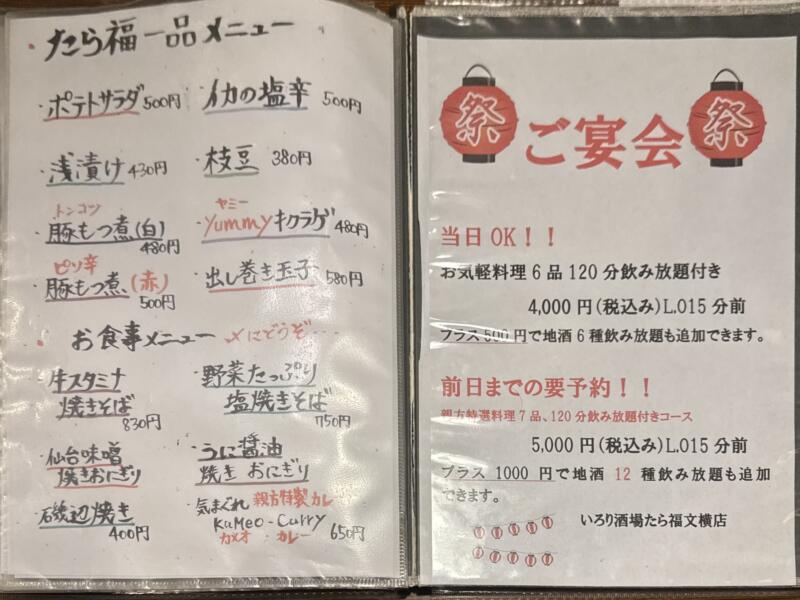 たら福一品メニュー
・ポテトサラダ 500円
・イカの塩辛 500円
・浅漬け 430円
・枝豆 380円
トンコツ
・豚もつ煮(白) 480円
ヤミー
・yummyキクラゲ 480円
ピリ辛
・豚もつ煮(赤) 500円
・出し巻き玉子 580円
・お食事メニュー 〆にどうぞ・・・・
・牛スタミナ
焼きそば 830円
・野菜たっぷり
塩焼きそば 750円
・仙台味噌
焼きおにぎり
・うに醤油
焼きおにぎり
・磯辺焼き 400円
・気まぐれ 親方特製カレー
KaMeo-Curry
カメオ・カレー 650円
祭 ご宴会 祭
当日 OK！！
お気軽料理 6 品 120 分飲み放題付き
4,000 円(税込み)L.O15 分前
プラス 500 円で地酒 6 種飲み放題も追加できます。
前日までの要予約！！
親方特選料理 7 品、120 分飲み放題付きコース
5,000 円(税込み)L.O15 分前
プラス 1000 円で地酒 12 種飲み放題も追加
できます。
いろり酒場たら福文横店